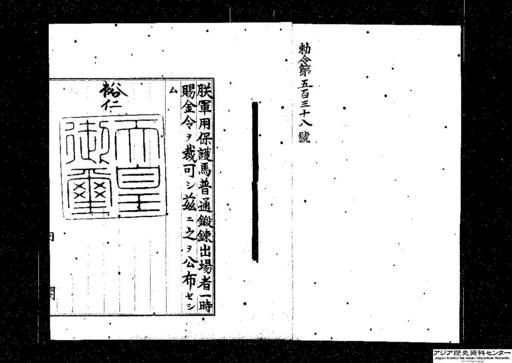 勅令第五百三十八號
朕軍用保護馬普通鍛錬出場者一時
賜金令ヲ裁可シ茲ニ之ヲ公布セシ
ム
裕仁
天皇
御璽
内閣
アジア歴史資料センター
Japan Center for Asian Historical Records